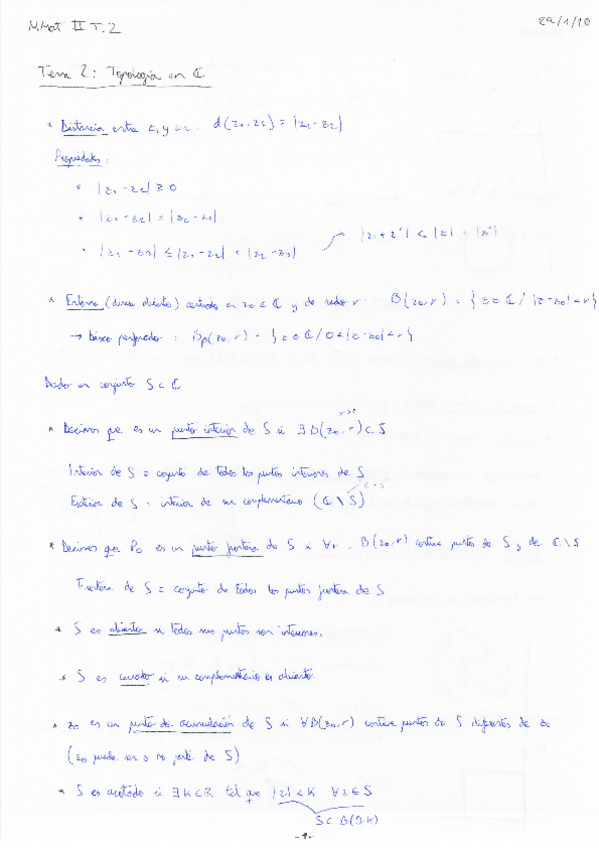 M.Mat II T.2
29/1/10
Tema 2: Topología en ℂ
* Distancia entre z₁ y z₂: d(z₁, z₂) = |z₁-z₂|
Propiedades:
* |z₁-z₂| ≥ 0
* |z₁-z₂| = |z₂-z₁|
* |z₁-z₃| ≤ |z₁-z₂| + |z₂-z₃| → |z+z'| ≤ |z| + |z'|
* Entorno (disco abierto) centrado en z₀ ∈ ℂ y de radio r: B(z₀,r) = {z∈ℂ / |z-z₀|<r}
→ Disco perforado: Bp(z₀,r) = {z∈ℂ / 0<|z-z₀|<r}
Dado un conjunto S⊂ℂ
r>0
* Decimos que es un punto interior de S si ∃ B(z₀,r)⊂S
Interior de S = conjunto de todos los puntos interiores de S
ℂ-S
Exterior de S = interior de su complementario (ℂ\S)
* Decimos que P₀ es un punto frontera de S si ∀r, B(z₀,r) contiene puntos de S y de ℂ\S
Frontera de S = conjunto de todos los puntos frontera de S
* S es abierto si todos sus puntos son interiores.
* S es cerrado si su complementario es abierto.
* z₀ es un punto de acumulación de S si ∀B(z₀,r) contiene puntos de S diferentes de z₀
(z₀ puede ser o no parte de S)
* S es acotado si ∃ K∈ℝ tal que |z|<K ∀z∈S
S⊂B(0,K)
-1-